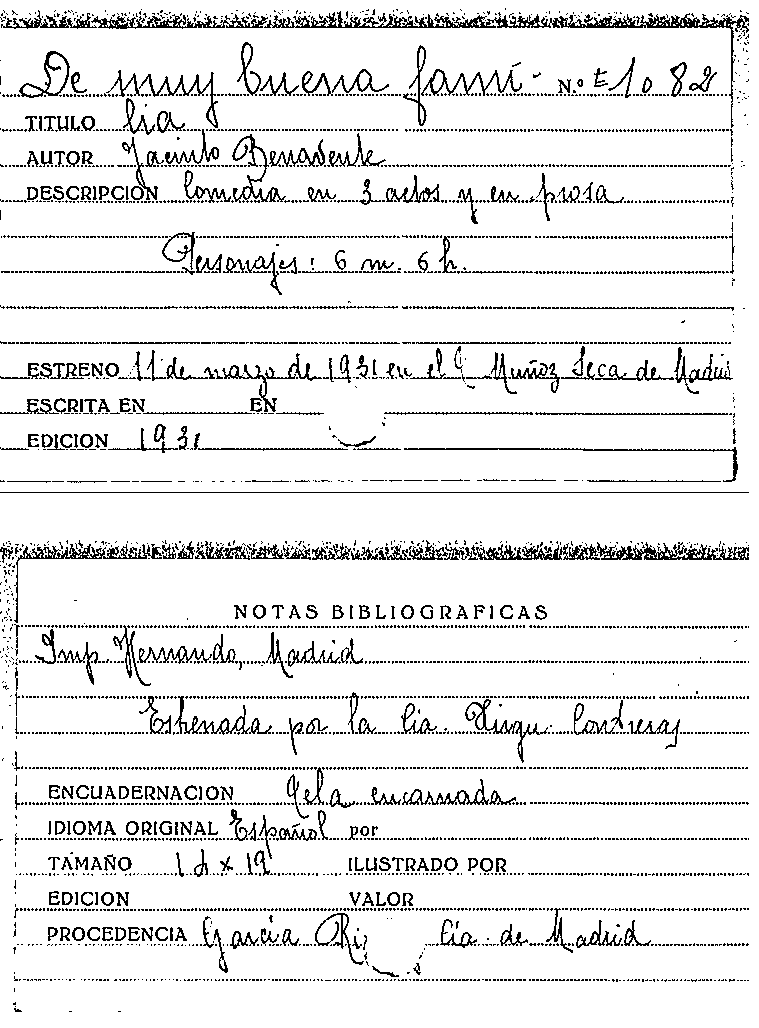 De muy buena fami- N.º E1082
TITULO lia
AUTOR Jacinto Benavente
DESCRIPCION Comedia en 3 actos y en prosa
Personajes: 6 m. 6 h.
ESTRENO 11 de marzo de 1931 en el T Muñoz Seca de Madrid
ESCRITA EN EN
EDICION 1931
NOTAS BIBLIOGRAFICAS
Imp Hernando, Madrid
Estrenada por la Cia. Xirgu-Contreras
ENCUADERNACION Tela encarnada
IDIOMA ORIGINAL Español por
TAMAÑO x 19 ILUSTRADO POR
EDICION VALOR
PROCEDENCIA García Cía. de Madrid